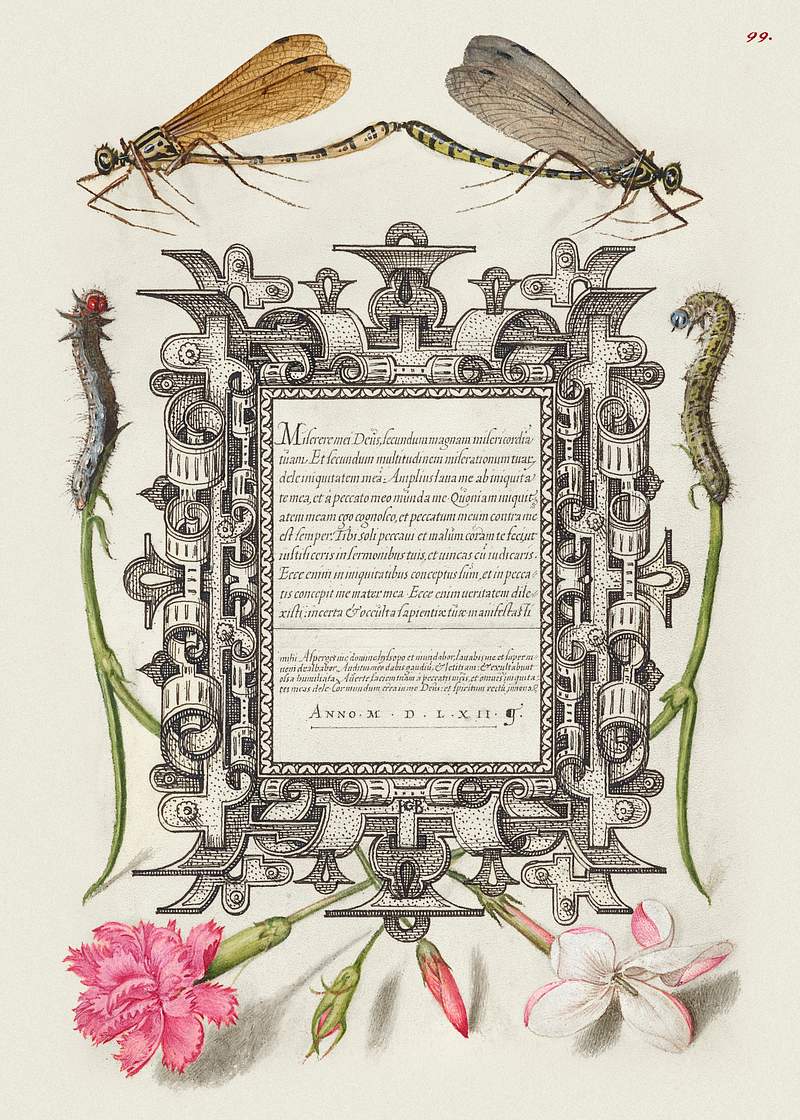 99.
Miserere mei Deus, secundum magnam misericordiā
tuam. Et secundum multitudinem miserationum tuar
dele iniquitatem meā. Amplius laua me ab iniquita
te mea, et à peccato meo munda me. Quoniam iniquit
atem meam ego cognosco, et peccatum meum contra me
est semper. Tibi soli peccaui et malum coram te feci, ut
iustificeris in sermonibus tuis, et uincas cū iudicaris.
Ecce enim in iniquitatibus conceptus sum, et in pecca
tis concepit me mater mea. Ecce enim ueritatem dile
xisti: incerta & occulta sapientiæ tuæ manifestasti
mihi Asperges me domine hysopo et mundabor, lauabis me et super ni
uem dealbabor. Auditui meo dabis gaudiū, & letitiam: & exultabunt
ossa humiliata. Auerte faciem tuam a peccatis meis, et omnes iniquita
tes meas dele. Cor mundum crea in me Deus: et spiritum rectū innoua
ANNO. M. D. L. XII.
HGB